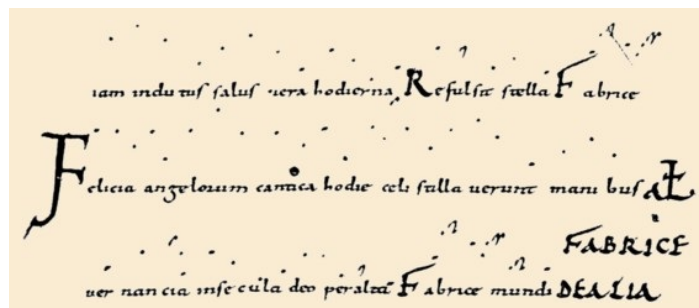 iam indu tus salus uera hodierna Refulsit stella Fabrice
Felicia angelorum cantica hodie celi stilla uerunt mani bus
FABRICE
uer nan cia inse cula deo Fabrice mundi DEALIA